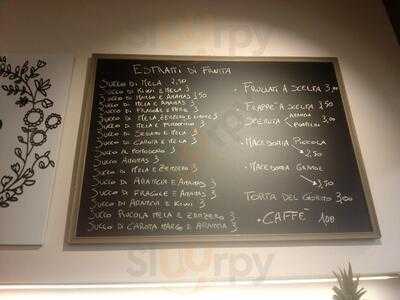 ESTRATTI DI FRUTTA
SUCCO DI MELA 2,50
SUCCO DI KIWI E MELA 3
SUCCO DI E ANANAS 3,50
SUCCO DI MELA E ANANAS 3
SUCCO DI FRAGOLE E MELA 3
SUCCO DI MELA ZENZERO E LIMONE 3
SUCCO DI MELA E 3
SUCCO DI SEDANO E MELA 3
SUCCO DI CAROTA E MELA 3
SUCCO DI POMODORO 3
SUCCO ANANAS 3
SUCCO DI MELA E ZENZERO 3
SUCCO DI ARANCIA E ANANAS 3
SUCCO DI FRAGOLE E ANANAS 3
SUCCO DI ARANCIA E KIWI 3
SUCCO PICCOLA MELA E ZENZERO 3
SUCCO DI CAROTA MANGO E ARANCIA 3
• FRULLATI A SCELTA 3,00
• FLAPPÈ A SCELTA 3,50
• SPREMUTA ARANCIA 3,00
POMPELMO
• MACEDONIA PICCOLA
2,50
• MACEDONIA GRANDE
3,50
TORTA DEL GIORNO 3,00
• CAFFÈ 1,00
sluurpy